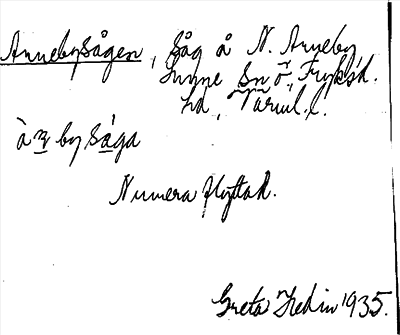 Annebysågen, Såg å N. Anneby
Sunne Sn ö., Fryksd.
hd, Värml. l.
à n by såga
Numera flyttad.
Greta Hedin 1935.